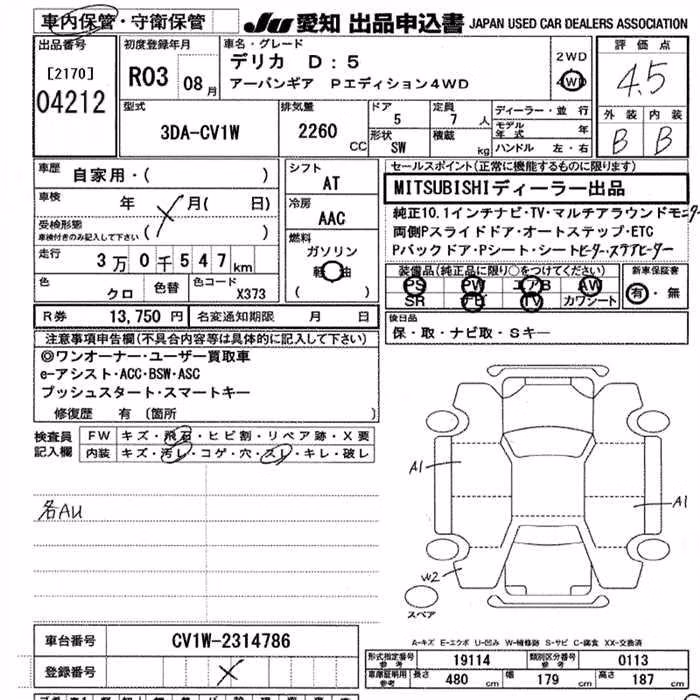 車内保管・守衛保管
JU 愛知 出品申込書 JAPAN USED CAR DEALERS ASSOCIATION
出品番号
[2170]
04212
初度登録年月
R03 08月
車名・グレード
デリカ D:5
アーバンギア Pエディション4WD
2WD
4WD
評価点
4.5
外装 内装
B B
型式
3DA-CV1W
排気量
2260 CC
ドア
5
形状
SW
定員
7 人
積載
kg
ディーラー・並行
モデル年式 年
ハンドル 左・右
車歴
自家用・( )
車検
年 月( 日)
受検形態
車検付きのみ記入して下さい
( )
走行
3万0千547km
色
クロ
色替
色コード
X373
シフト
AT
冷房
AAC
燃料
ガソリン
軽油
( )
セールスポイント(正常に機能するものに限ります)
MITSUBISHIディーラー出品
純正10.1インチナビ・TV・マルチアラウンドモニター
両側Pスライドドア・オートステップ・ETC
Pバックドア・Pシート・シートヒーター・ステアヒーター
装備品(純正品に限り○をつけてください)
PS PW エアB AW
SR ナビ TV カワシート
新車保証書
有・無
R券 13,750円 名変通知期限 月 日
後日品
保・取・ナビ取・Sキー
注意事項申告欄(不具合内容等は具体的に記入して下さい)
◎ワンオーナー・ユーザー買取車
e-アシスト・ACC・BSW・ASC
プッシュスタート・スマートキー
修復歴 有 〔箇所 〕
検査員記入欄
FW キズ・飛石・ヒビ割・リペア跡・X要
内装 キズ・汚レ・コゲ・穴・スレ・キレ・破レ
各AU
A1
A1
W2
スペア
車台番号 CV1W-2314786
登録番号
A-キズ E-エクボ U-凹み W-補修跡 S-サビ C-腐食 XX-交換済
形式指定番号 参考 19114 類別区分番号 参考 0113
車庫証明用 参考 長さ 480 cm 幅 179 cm 高さ 187 cm